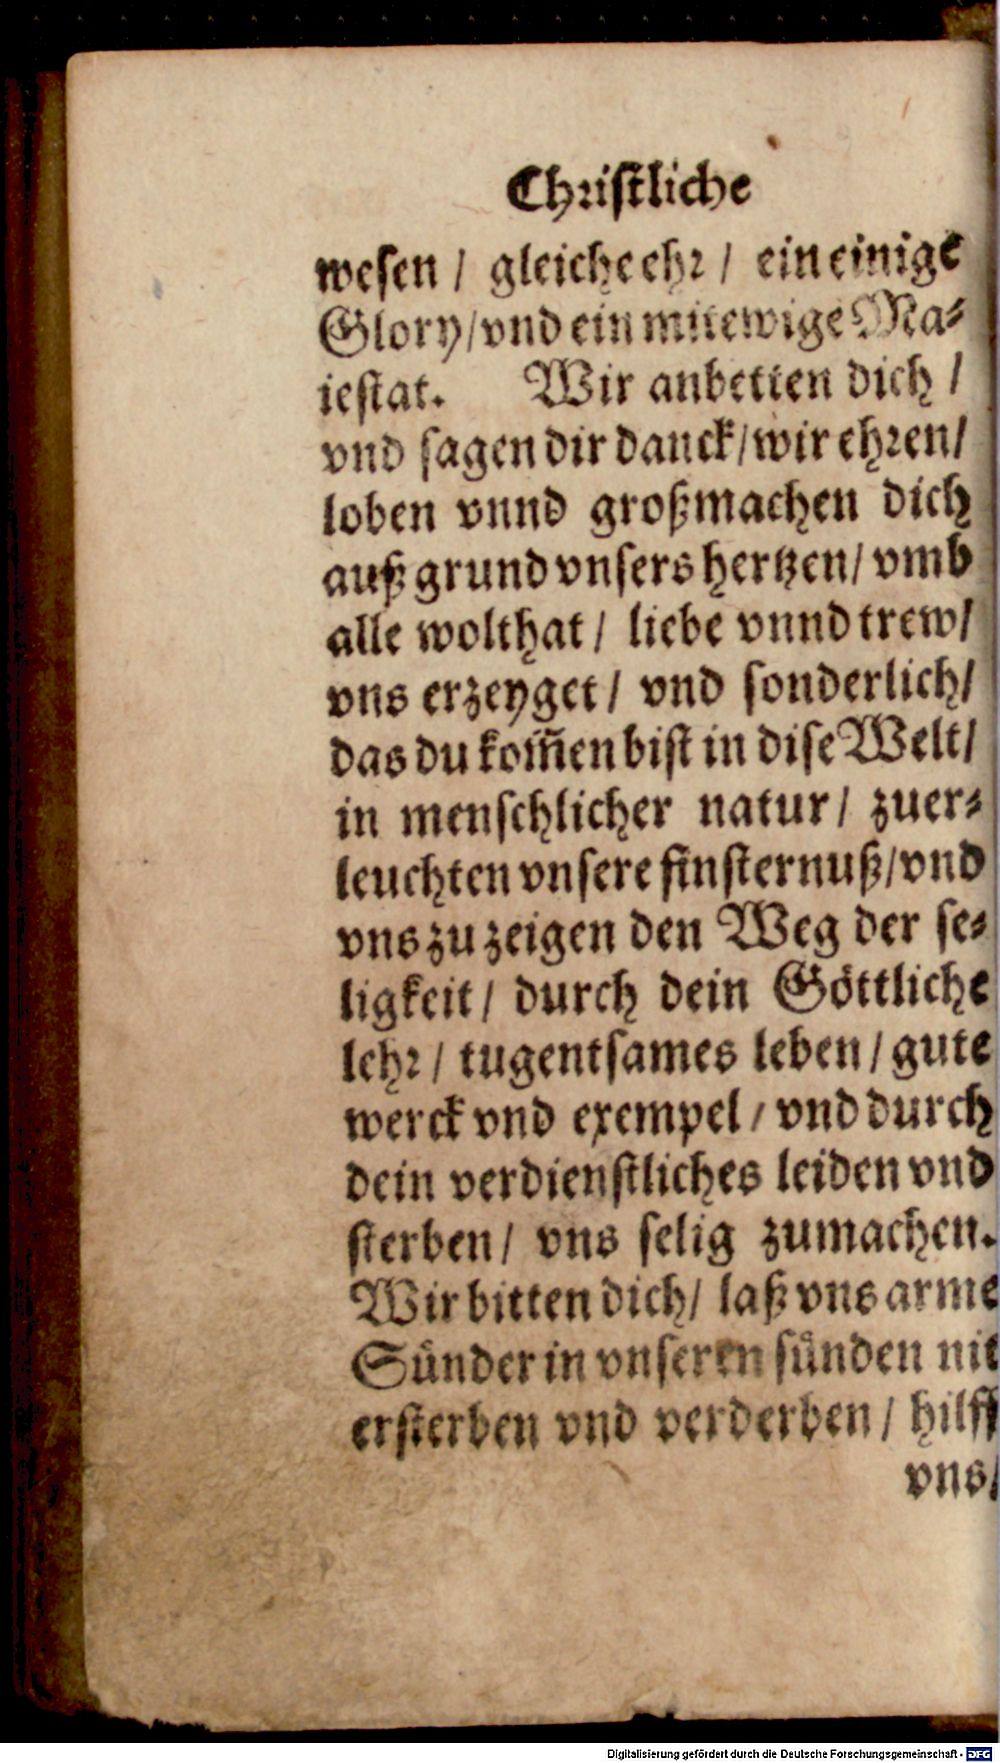 Christliche
wesen / gleiche ehr / ein einige
Glory/vnd ein mitewige Ma⸗
iestat. Wir anbetten dich /
vnd sagen dir danck/wir ehren/
loben vnnd großmachen dich
auß grund vnsers hertzen/ vmb
alle wolthat / liebe vnnd trew/
vns erzeyget / vnd sonderlich/
das du kom̃en bist in dise Welt/
in menschlicher natur / zuer⸗
leuchten vnsere finsternuß/vnd
vns zu zeigen den Weg der se⸗
ligkeit / durch dein Göttliche
lehr / tugentsames leben / gute
werck vnd exempel / vnd durch
dein verdienstliches leiden vnd
sterben / vns selig zumachen.
Wir bitten dich/ laß vns arme
Sünder in vnseren sünden nit
ersterben vnd verderben / hilff
vns/
Digitalisierung gefördert durch die Deutsche Forschungsgemeinschaft - DFG